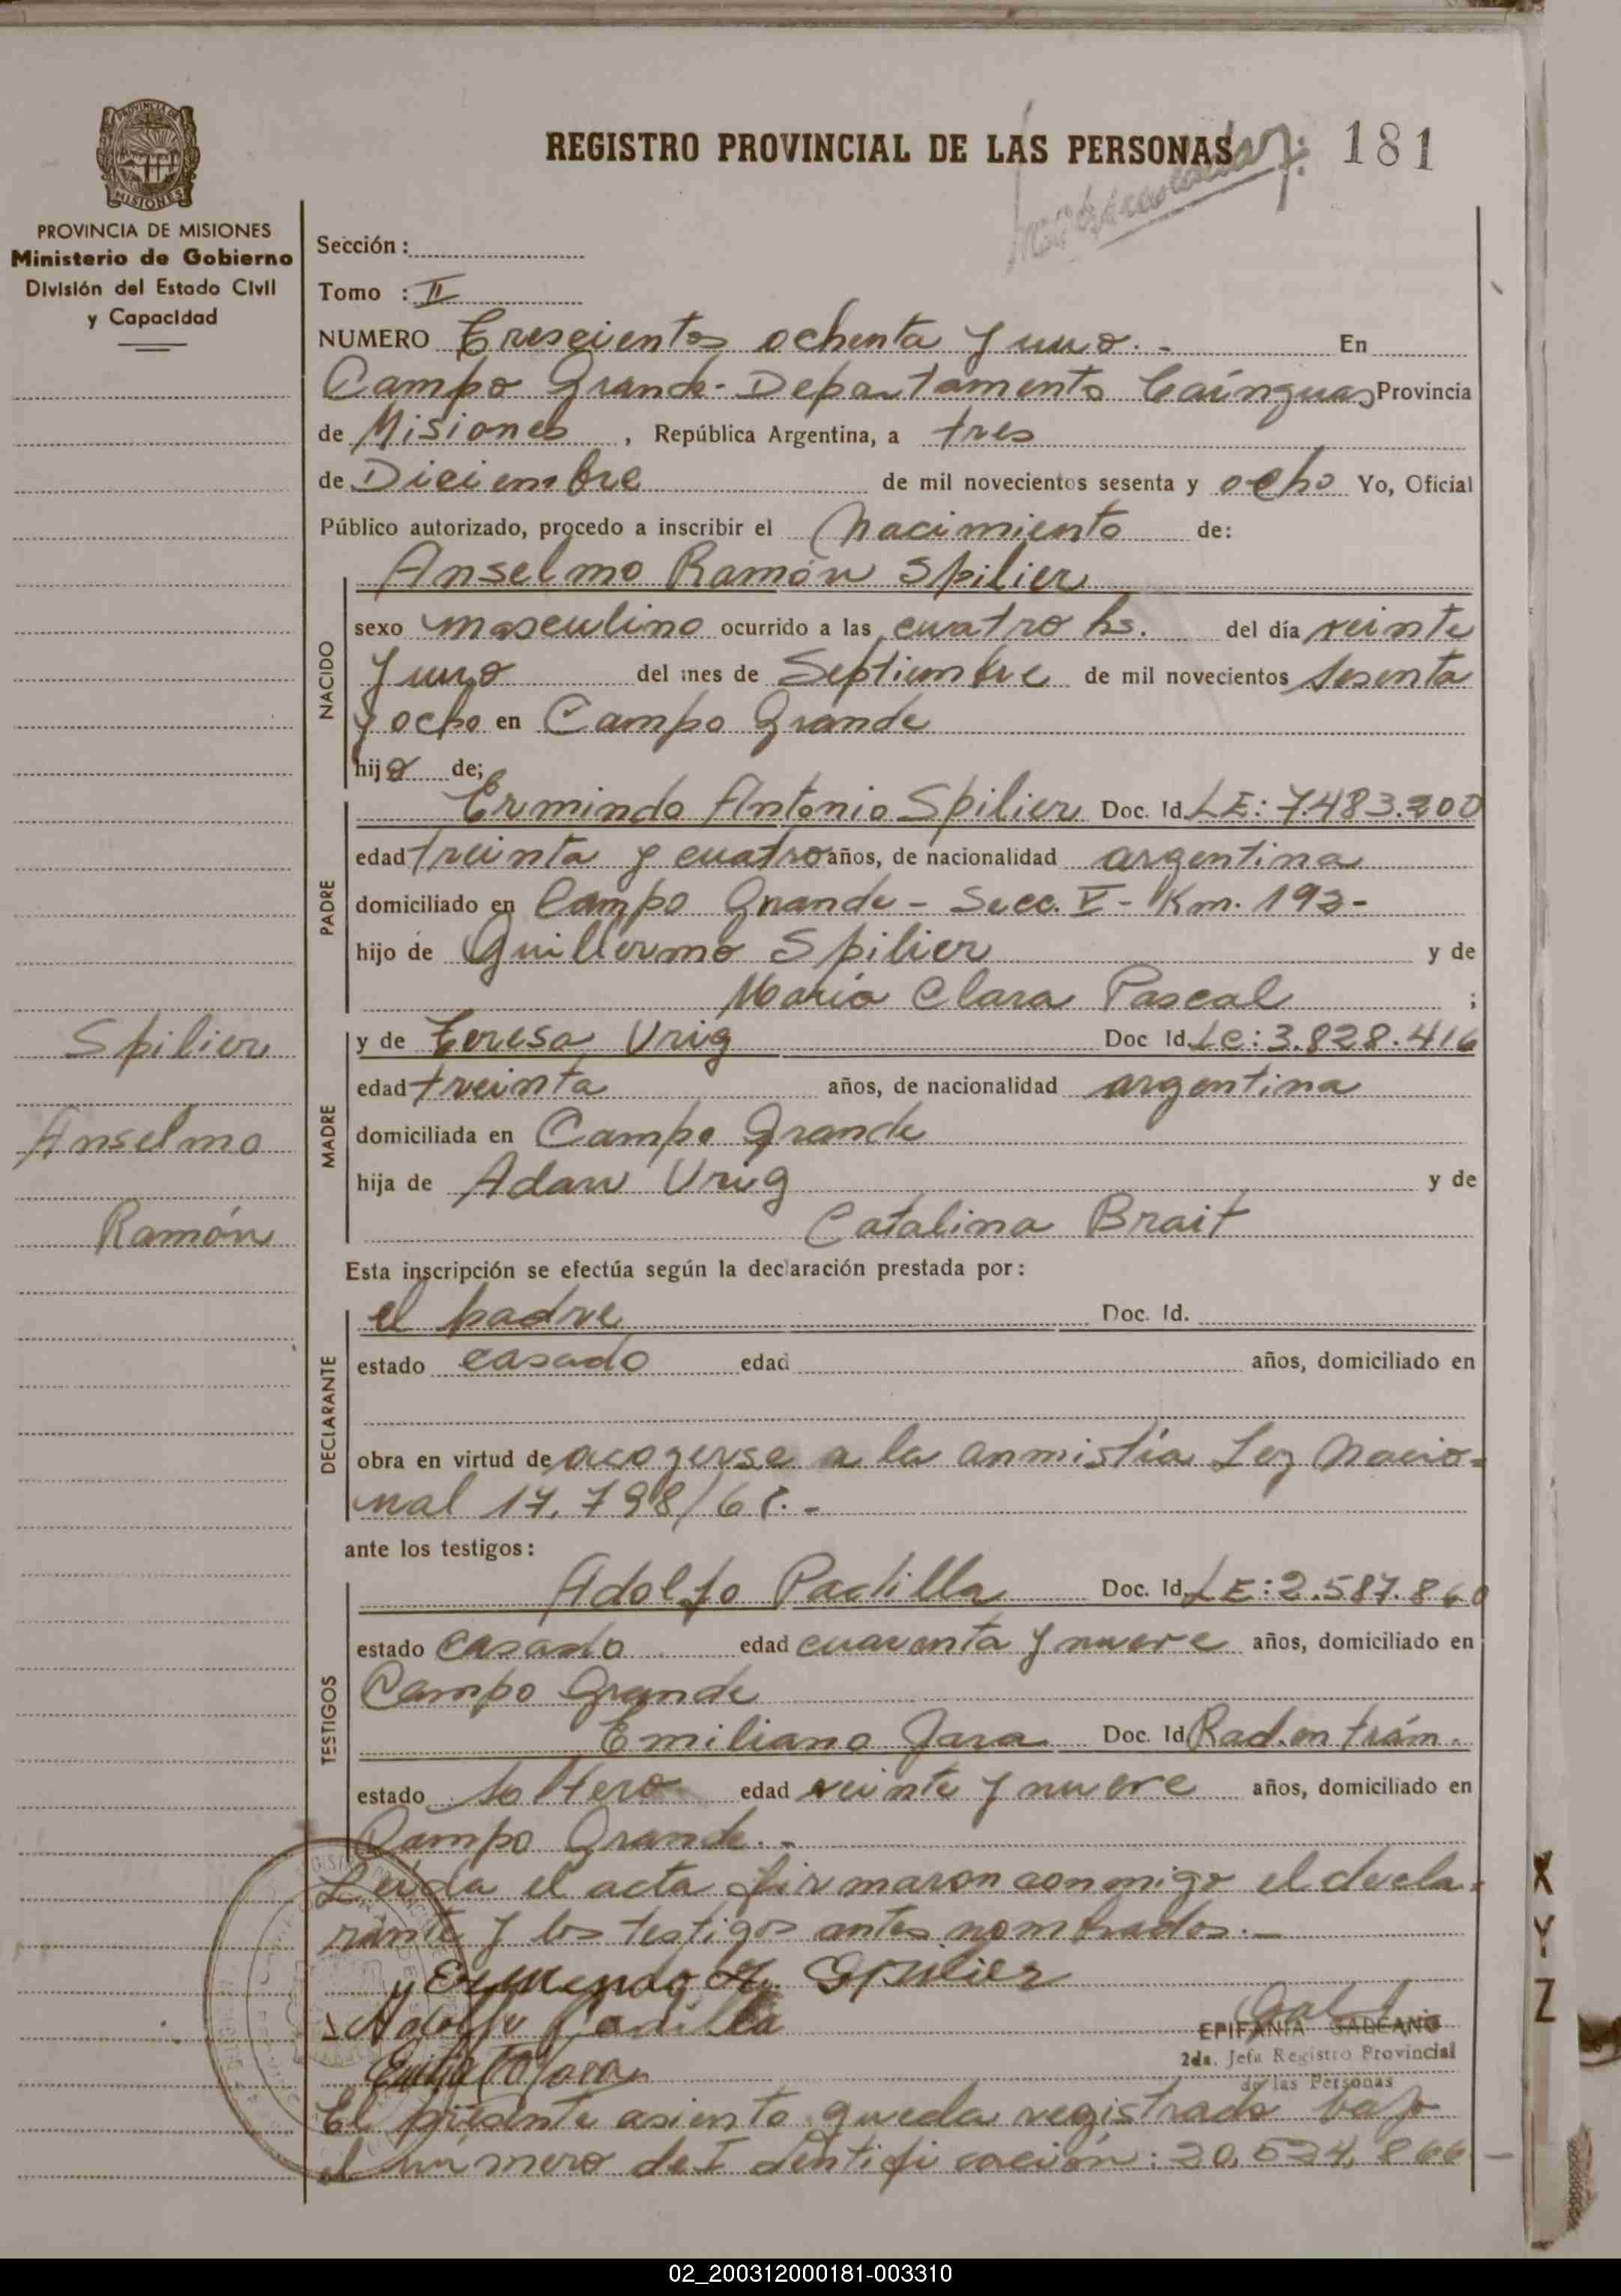 REGISTRO PROVINCIAL DE LAS PERSONAS
181
PROVINCIA DE MISIONES
Ministerio de Gobierno
División del Estado Civil
y Capacidad
Sección :
Tomo : II
NUMERO Trescientos ochenta y uno. - En
Campo Grande - Departamento Cainguas Provincia
de Misiones , República Argentina, a tres
de Diciembre de mil novecientos sesenta y ocho Yo, Oficial
Público autorizado, procedo a inscribir el Nacimiento de:
NACIDO
Anselmo Ramón Spilier
sexo masculino ocurrido a las cuatro hs. del día veinte
y uno del mes de Septiembre de mil novecientos sesenta
y ocho en Campo Grande
hijo de;
PADRE
Ermindo Antonio Spilier Doc. Id. LE: 7.483.200
edad treinta y cuatro años, de nacionalidad argentina
domiciliado en Campo Grande - Secc. V - Km. 193 -
hijo de Guillermo Spilier y de
María Clara Pascal ;
Spilier
Anselmo
Ramón
MADRE
y de Teresa Urig Doc Id. LC: 3.828.416
edad treinta años, de nacionalidad argentina
domiciliada en Campo Grande
hija de Adan Urig y de
Catalina Brait
Esta inscripción se efectúa según la declaración prestada por:
DECLARANTE
el padre Doc. Id.
estado casado edad años, domiciliado en
obra en virtud de acogerse a la anmistía Ley Nacio-
nal 17.798/68. -
ante los testigos:
TESTIGOS
Adolfo Padilla Doc. Id. LE: 2.587.860
estado casado edad cuarenta y nueve años, domiciliado en
Campo Grande
Emiliano Jara Doc. Id Rad. en trám.
estado soltero edad veinte y nueve años, domiciliado en
Campo Grande. -
Leída el acta firmaron conmigo el decla-
rante y los testigos antes nombrados. -
Ermindo A. Spilier
Adolfo Padilla
EPIFANIA GALEANO
2da. Jefa Registro Provincial
de las Personas
El presente asiento queda registrado bajo
el número de Identificación: 20.534.866 -
X
Y
Z
02_200312000181-003310